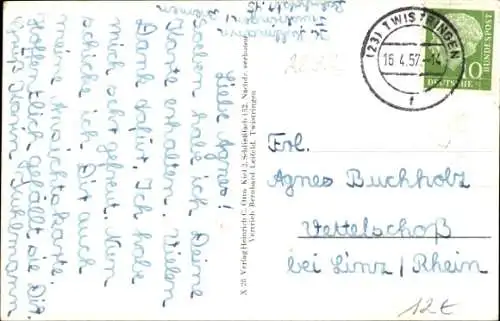 Liebe Agnes!
Soeben habe ich Deine
Karte erhalten. Vielen
Dank dafür. Ich habe
mich sehr gefreut. Nun
schicke ich Dir auch
meine Ansichtskarte.
Hoffentlich gefällt sie Dir.
Gruß Karin Kuhlmann
Kuhlmann
Twistringen
X 26 Verlag Heinrich C. Otto, Kiel 2, Schließfach 152, Nachdr. verboten
Vertrieb: Bernhard Leifeld, Twistringen
(23) TWISTRINGEN
16.4.57.-14
f
10
DEUTSCHE BUNDESPOST
Frl.
Agnes Buchholz
Vettelschoß
bei Linz/Rhein
12€